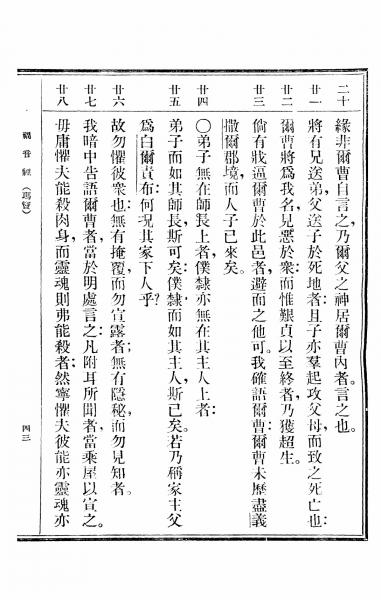 二十 緣非爾曹自言之，乃爾父之神居爾曹內者，言之也。
廿一 將有兄送弟，父送子於死地者；且子亦羣起攻父母，而致之死亡也；
廿二 爾曹將爲我名見惡於衆；而惟艱貞以至終者，乃獲超生。
廿三 倘有戕逼爾曹於此邑者，避而之他可。我確語爾曹：爾曹未歷盡義
撒爾郡境，而人子已來矣。
廿四 〇弟子無在師長上者；僕隸亦無在其主人上者：
廿五 弟子而如其師長，斯可矣；僕隸而如其主人，斯已矣。若乃稱家主父
爲白爾責布；何況其家下人乎？
廿六 故勿懼彼衆也；無有掩覆，而勿宣露者；無有隱秘，而勿見知者。
廿七 我暗中吿語爾曹者，當於明處言之；凡附耳所聞者，當乘屋以宣之。
廿八 毋庸懼夫能殺肉身，而靈魂則弗能殺者；然寧懼夫彼能亦靈魂亦
福音經（瑪竇）
四三